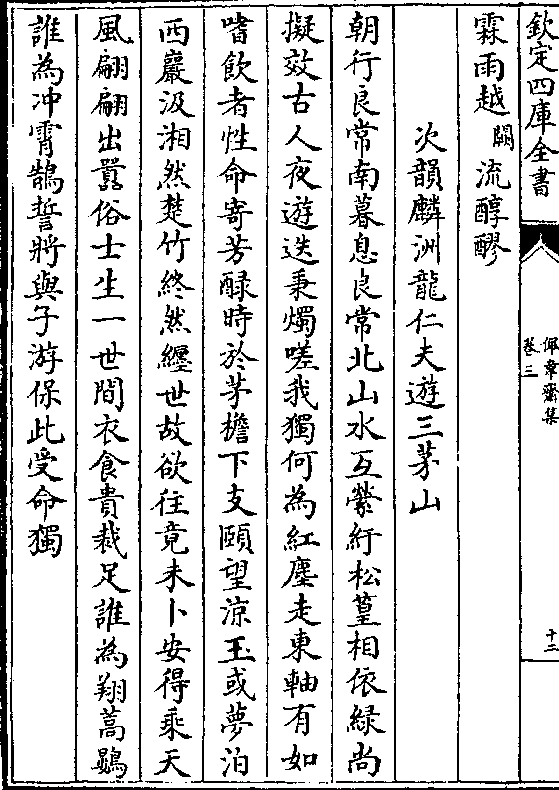 欽定四庫全書
佩韋齋集
卷三
十二
霖雨越闕流醇醪
次韻麟洲龍仁夫遊三茅山
朝行良常南暮息良常北山水互縈紆松篁相依綠尚
擬效古人夜遊迭秉燭嗟我獨何為紅塵走東軸有如
嗜飲者性命寄芳醁時於茅檐下支頤望涼玉或夢泊
西巖汲湘然楚竹終然纏世故欲往竟未卜安得乘天
風翩翩出囂俗士生一世間衣食貴裁足誰為翔蒿鷃
誰為冲霄鵠誓將與子游保此受命獨